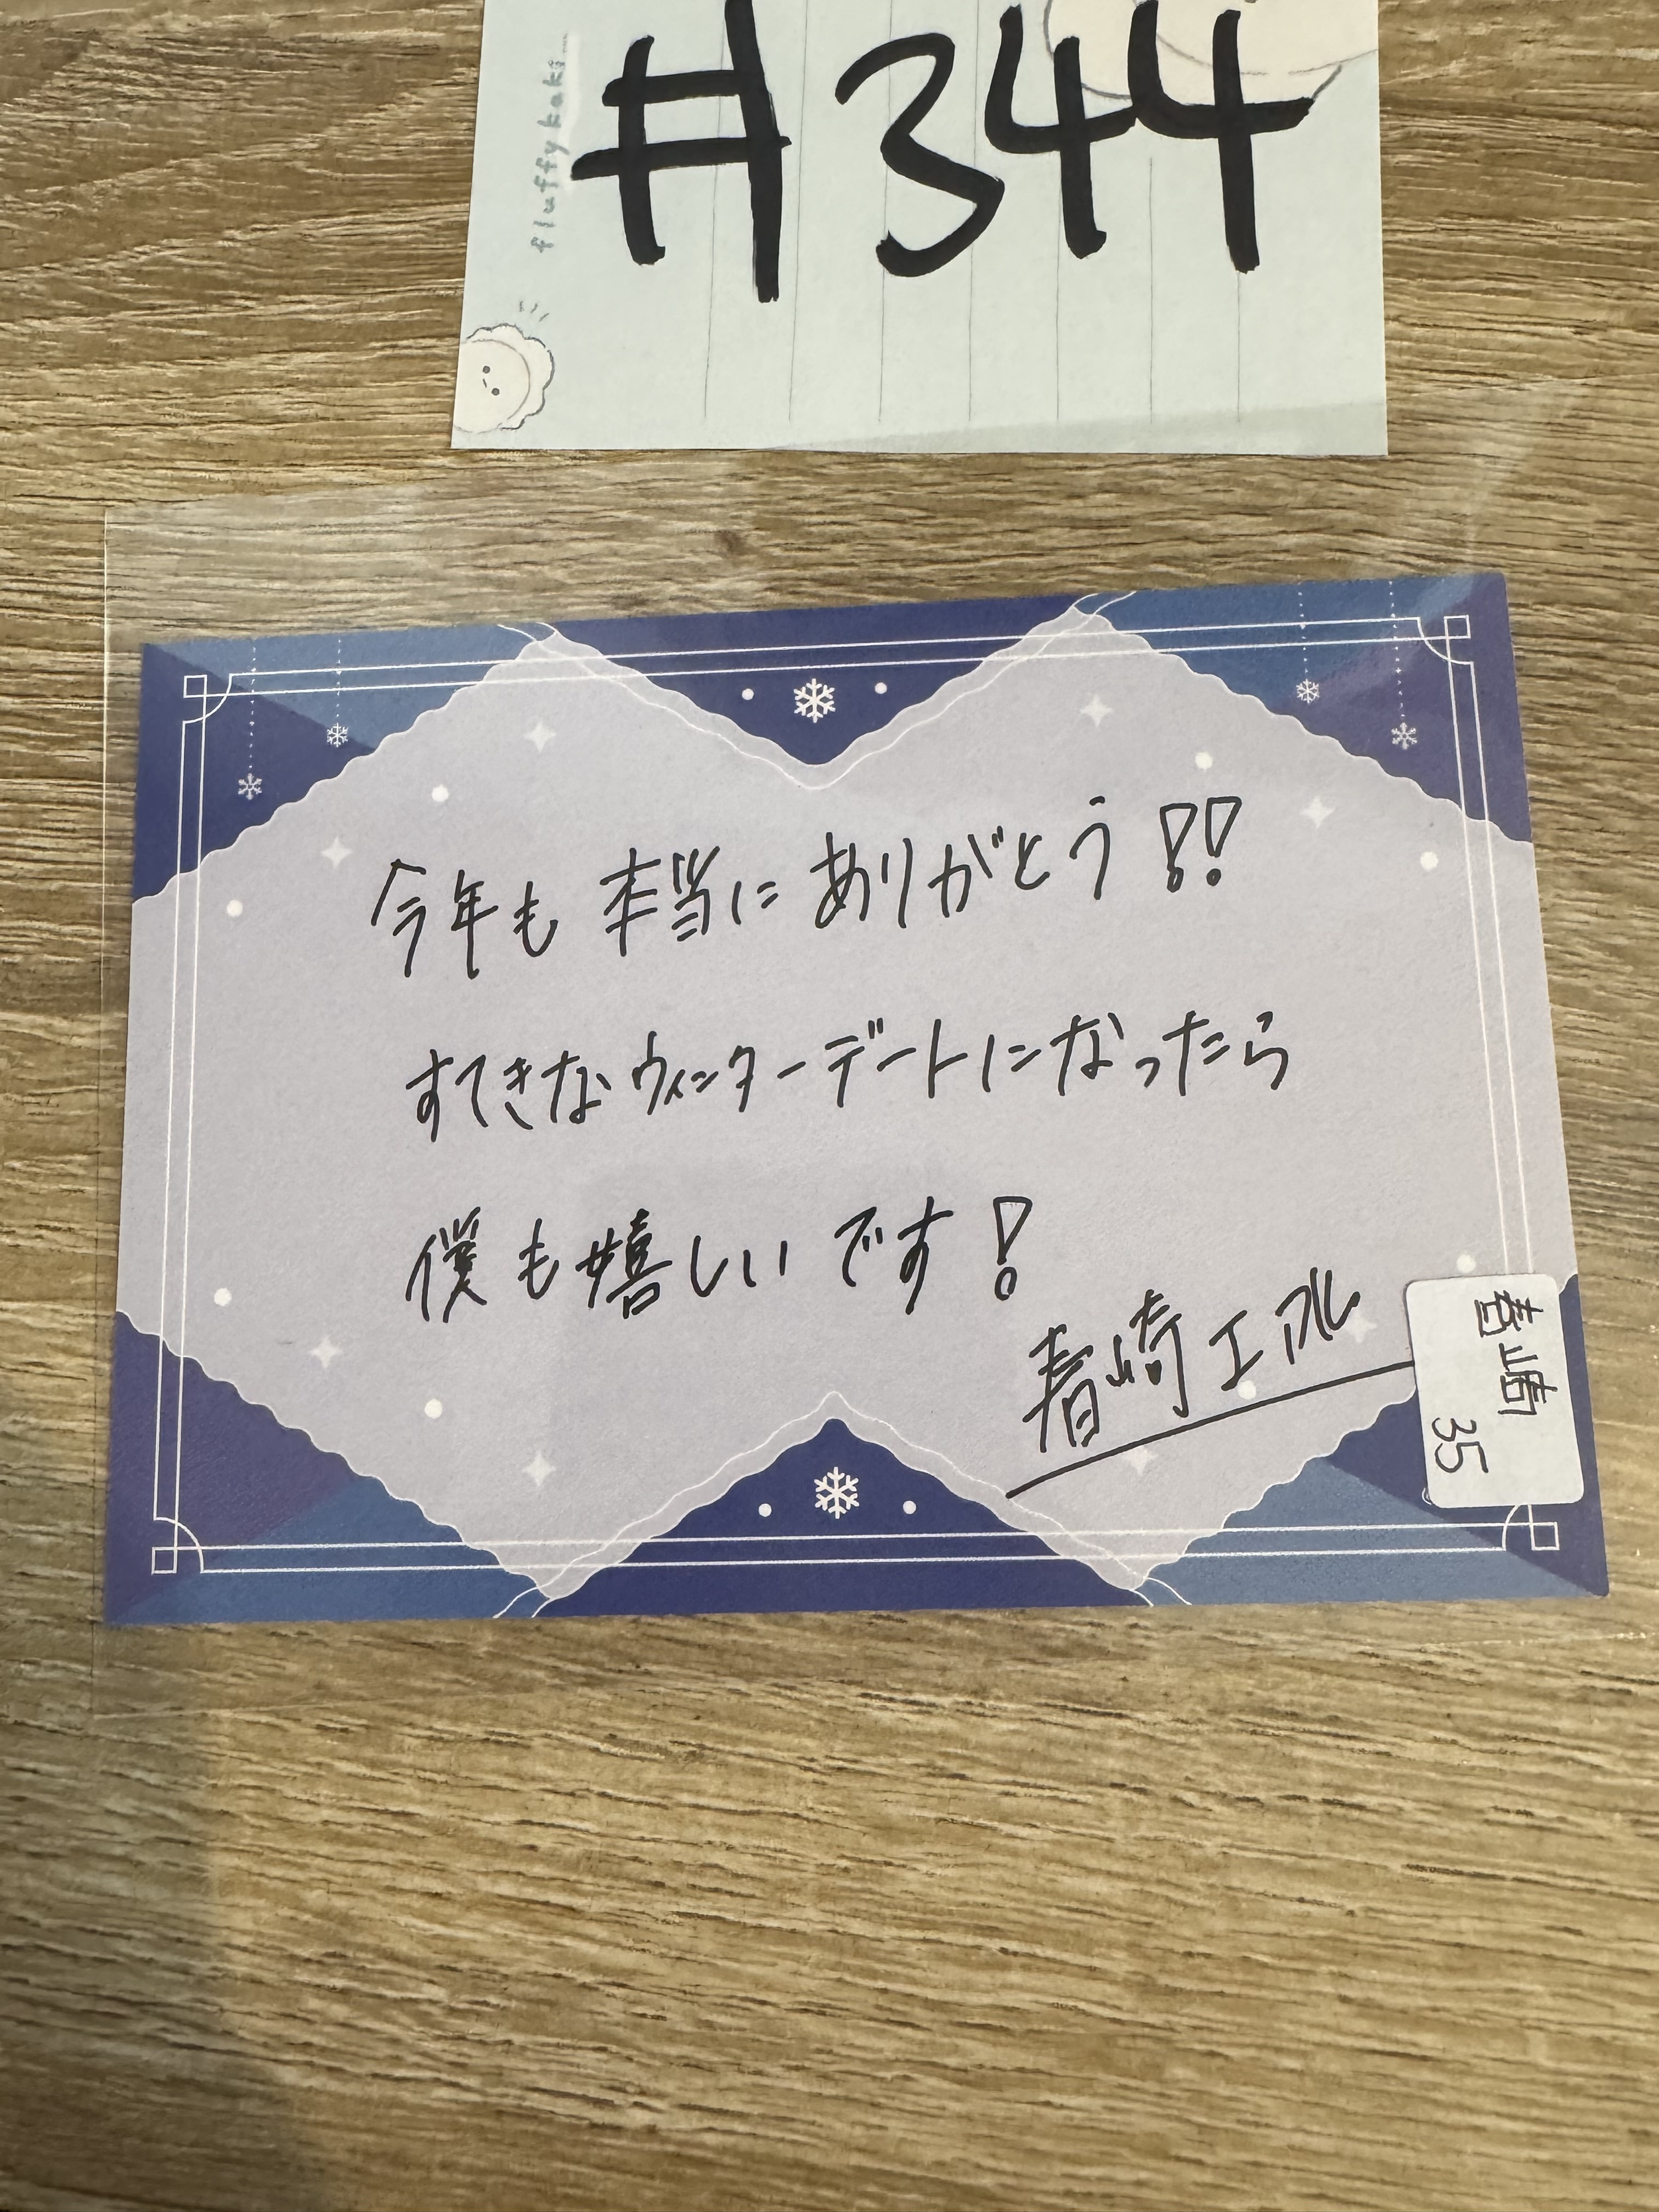 #344
fluffy kaki...
今年も 本当に ありがとう!!
すてきなウィンターデートになったら
僕も嬉しいです!
春崎エアル
春崎
35